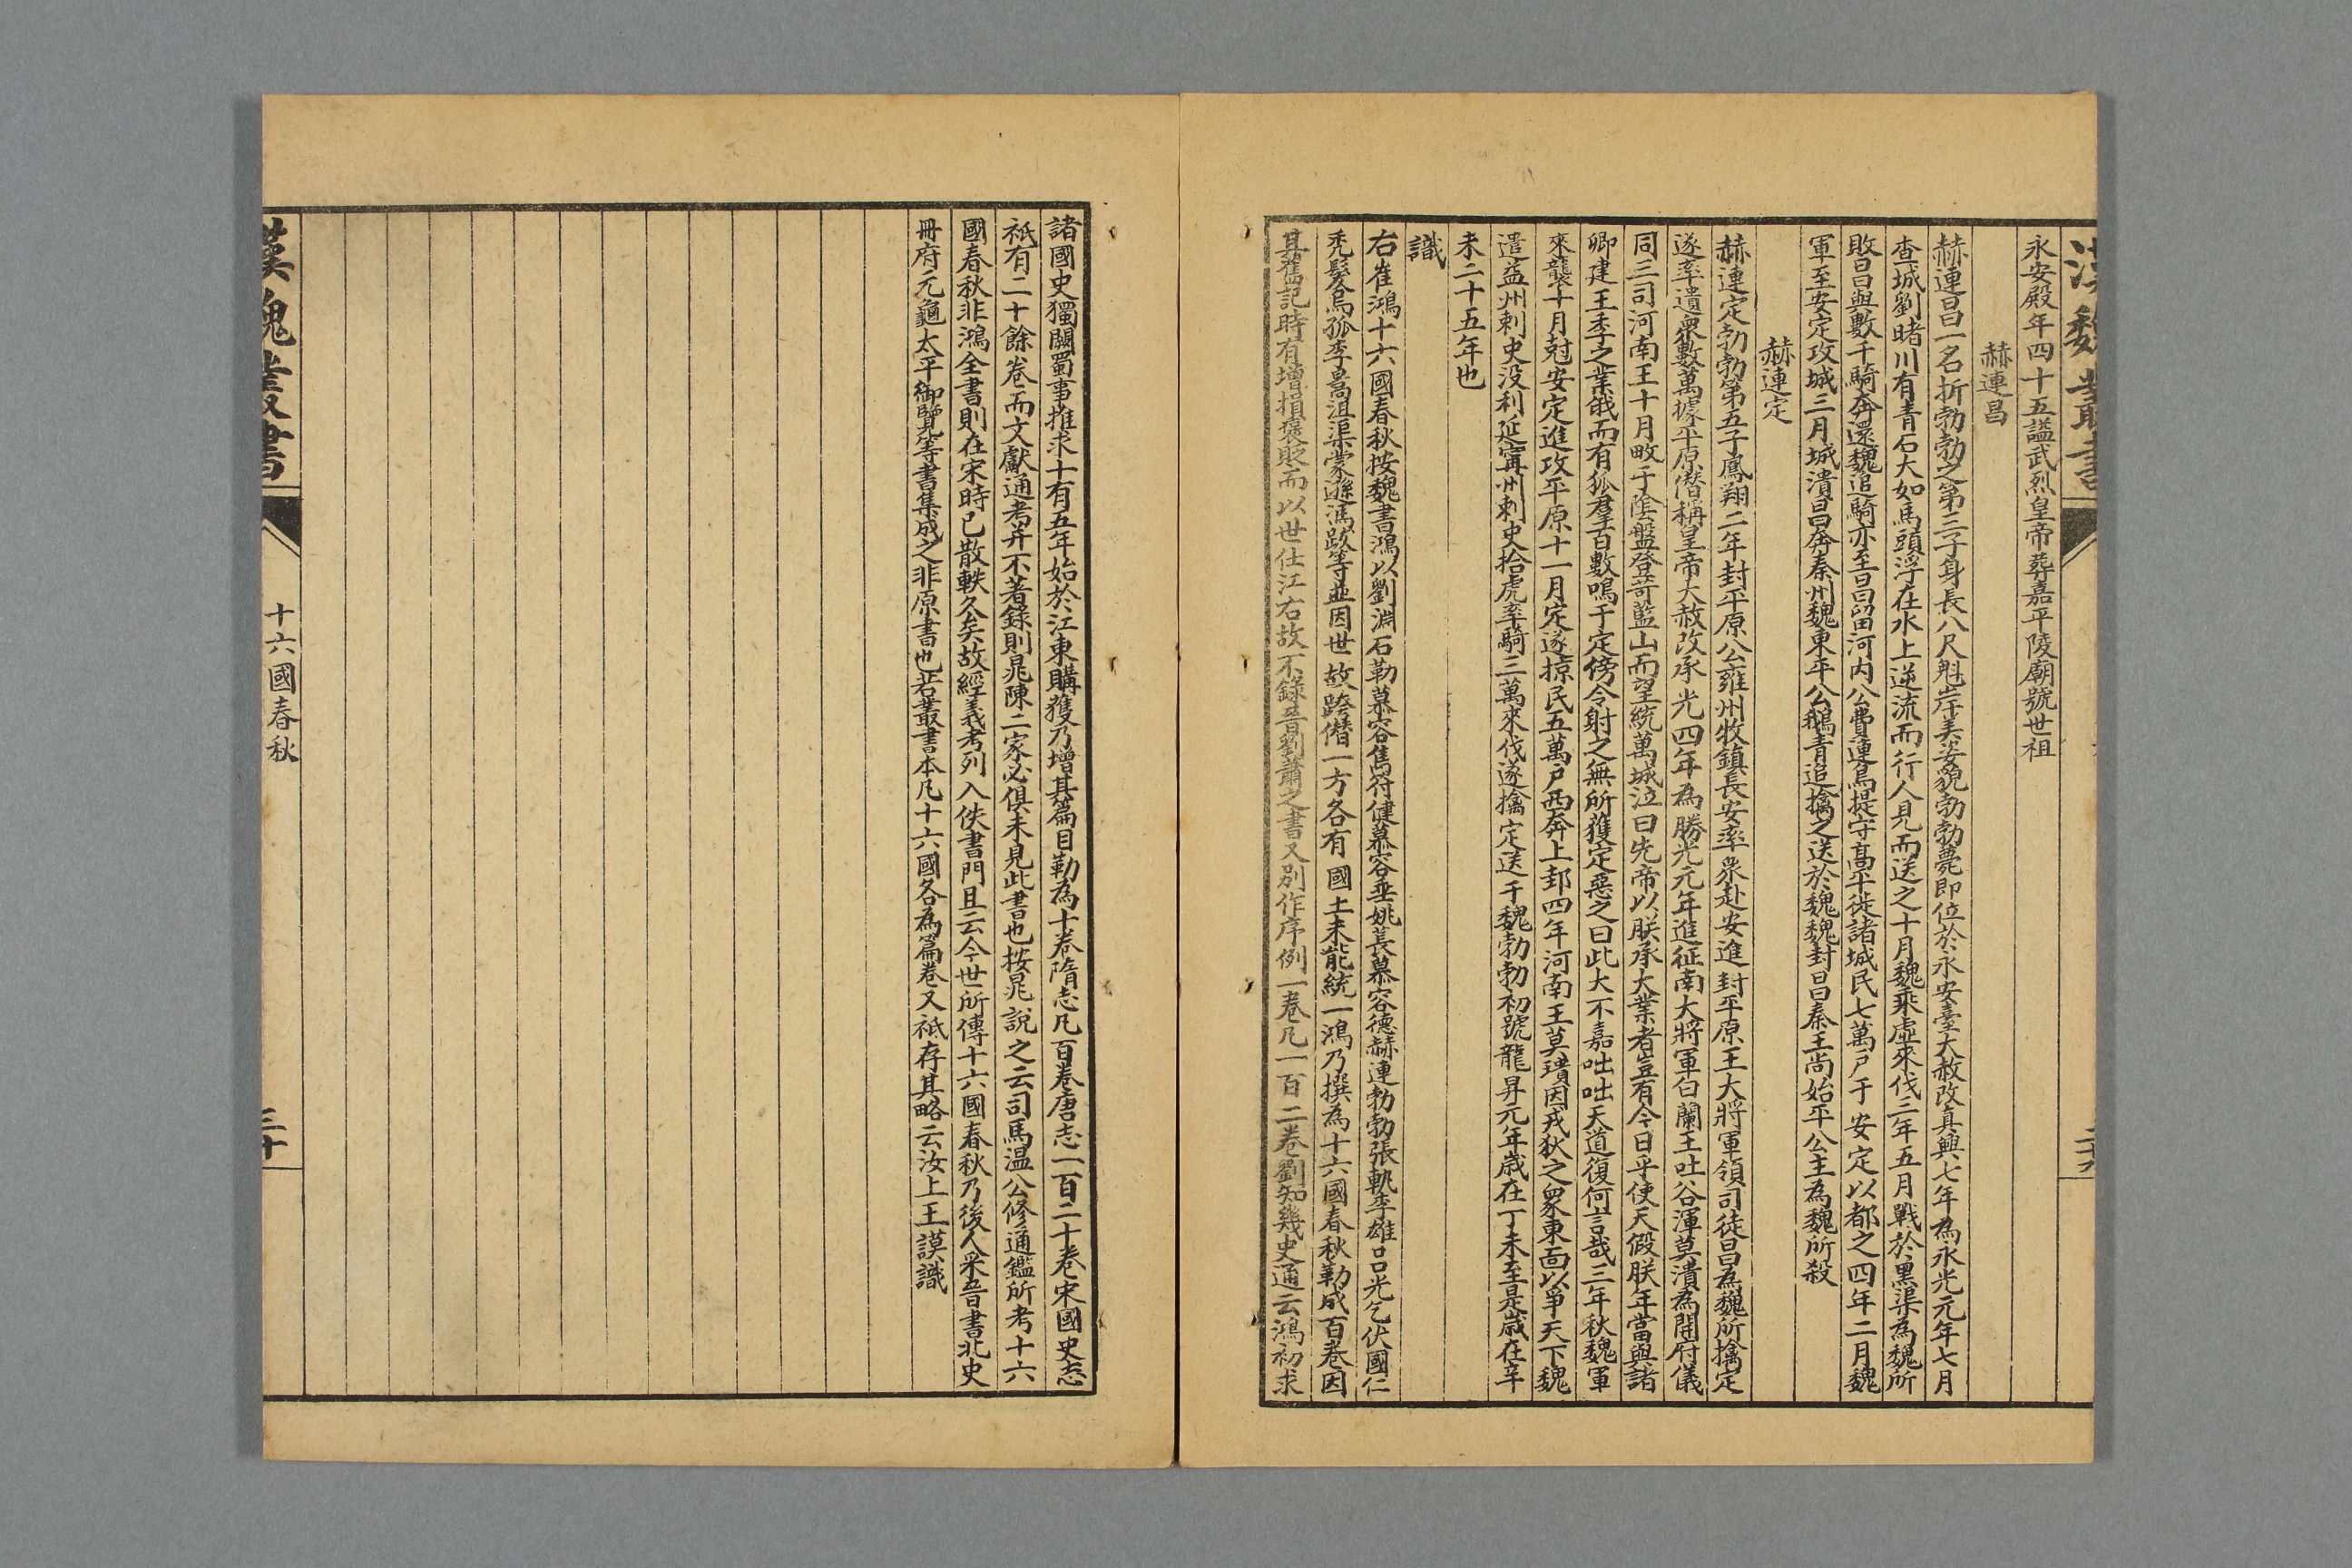 漢魏叢書
永安殿年四十五謚武烈皇帝葬嘉平陵廟號世祖
赫連昌
赫連昌一名折勃勃之第三子身長八尺魁岸美姿貌勃勃薨即位於永安臺大赦改真興七年為永光元年七月
查城劉睹川有青石大如馬頭浮在水上逆流而行人見而送之十月魏乘虛來伐三年五月戰於黑渠為魏所
敗昌與數千騎奔還魏追騎亦至昌留河内公費連烏提守高平徙諸城民七萬户于安定以都之四年二月魏
軍至安定攻城三月城潰昌奔秦州魏東平公鵝青追擒之送於魏魏封昌秦王尚始平公主為魏所殺
赫連定
赫連定勃勃第五子鳳翔二年封平原公雍州牧鎮長安率衆赴安進封平原王大將軍領司徒昌為魏所擒定
遂率遺衆數萬據平原僭稱皇帝大赦改承光四年為勝光元年進征南大將軍白蘭王吐谷渾莫潰為開府儀
同三司河南王十月畋于陰盤登苛藍山而望統萬城泣曰先帝以朕承大業者豈有今日乎使天假朕年當與諸
卿建王季之業俄而有狐羣百數鳴于定傍令射之無所獲定惡之曰此大不嘉咄咄天道復何言哉三年秋魏軍
來襲十月尅安定進攻平原十一月定遂掠民五萬户西奔上邽四年河南王莫璝因戎狄之衆東面以爭天下魏
遣益州刺史没利延甯州刺史拾虎率騎三萬來伐遂擒定送于魏勃勃初號龍昇元年歲在丁未至是歲在辛
未二十五年也
識
右崔鴻十六國春秋按魏書鴻以劉淵石勒慕容儁符健慕容垂姚萇慕容德赫連勃勃張軌李雄吕光乞伏國仁
秃髮烏孤李暠沮渠蒙遜馮跋等並因世故跨僭一方各有國土未能統一鴻乃撰為十六國春秋勒成百卷因
其舊記時有增損褒貶而以世仕江右故不錄晉劉蕭之書又別作序例一卷凡一百二卷劉知幾史通云鴻初求
諸國史獨闕蜀事推求十有五年始於江東購獲乃增其篇目勒為十卷隋志凡百卷唐志一百二十卷宋國史志
祇有二十餘卷而文獻通考并不著錄則晁陳二家必俱未見此書也按晁說之云司馬温公修通鑑所考十六
國春秋非鴻全書則在宋時已散軼久矣故經義考列入佚書門且云今世所傳十六國春秋乃後人采晉書北史
冊府元龜太平御覽等書集成之非原書也若叢書本凡十六國各為篇卷又祇存其略云汝上王謨識
漢魏叢書
十六國春秋
三十